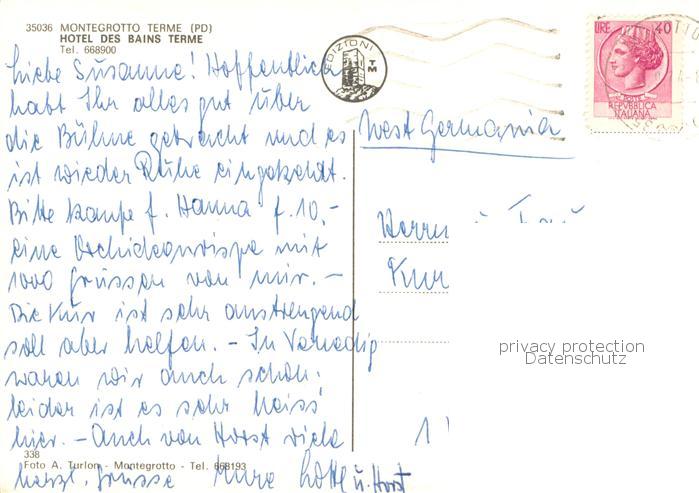 35036 MONTEGROTTO TERME (PD)
HOTEL DES BAINS TERME
Tel. 668900
Liebe Susanne! Hoffentlich
habt Ihr alles gut über
die Bühne gebracht und es
ist wieder Ruhe eingekehrt.
Bitte kaufe f. Hanna f. 10,-
eine Orchideenrispe mit
1000 Grüssen von mir. –
Die Kur ist sehr anstrengend
soll aber helfen. – In Venedig
waren wir auch schon.
leider ist es sehr heiss
hier. – Auch von Horst viele
herzl. Grüsse Eure Lotte u. Horst
338
Foto A. Turlon - Montegrotto - Tel. 668193
EDIZIONI
TM
LIRE 40
POSTE
REPVBBLICA
ITALIANA
West Germania
Herrn u
Kur
privacy protection
Datenschutz